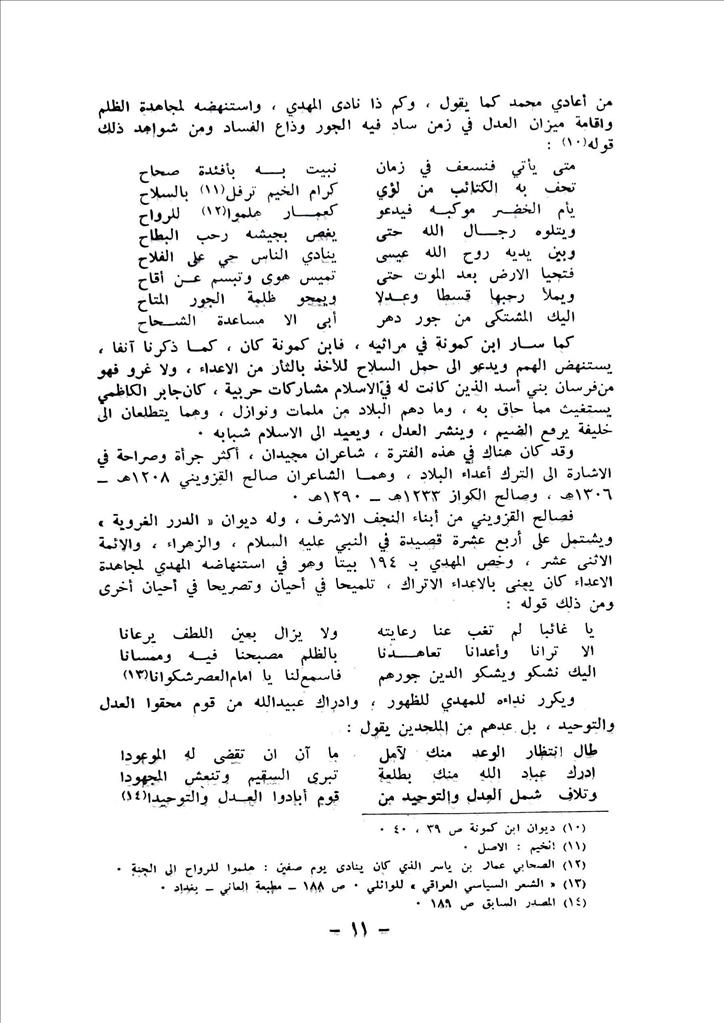 من أعادي محمد كما يقول ، وكم ذا نادى المهدي ، واستنهضه لمجاهدة الظلم
واقامة ميزان العدل في زمن ساد فيه الجور وذاع الفساد ومن شواهد ذلك
قوله(١٠) :
متى يأتي فنسعف في زمان نبيت بـه بأفئدة صحاح
تحف به الكتائب من لؤي كرام الخيم ترفل(١١) بالسلاح
يأم الخضر موكبه فيدعو كعمار هلموا(١٢) للرواح
ويتلوه رجال الله حتى يغص بجيشه رحب البطاح
وبين يديه روح الله عيسى ينادي الناس حي على الفلاح
فتحيا الارض بعد الموت حتى تميس هوى وتبسم عن أقاح
ويملأ رحبها قسطا وعدلا ويمحو ظلمة الجور المتاح
اليك المشتكى من جور دهر أبى الا مساعدة الشحاح
كما سار ابن كمونة في مراثيه ، فابن كمونة كان ، كما ذكرنا آنفا ،
يستنهض الهمم ويدعو الى حمل السلاح للأخذ بالثأر من الاعداء ، ولا غرو فهو
من فرسان بني أسد الذين كانت له في الاسلام مشاركات حربية ، كان جابر الكاظمي
يستغيث مما حاق به ، وما دهم البلاد من ملمات ونوازل ، وهما يتطلعان الى
خليفة يرفع الضيم ، وينشر العدل ، ويعيد الى الاسلام شبابه ٠
وقد كان هناك في هذه الفترة ، شاعران مجيدان ، أكثر جرأة وصراحة في
الاشارة الى الترك أعداء البلاد ، وهما الشاعران صالح القزويني ١٢٠٨هـ ــ
١٣٠٦هـ ، وصالح الكواز ١٢٣٣هـ ــ ١٢٩٠هـ ٠
فصالح القزويني من أبناء النجف الاشرف ، وله ديوان « الدرر الغروية »
ويشتمل على أربع عشرة قصيدة في النبي عليه السلام ، والزهراء ، والائمة
الاثنى عشر ، وخص المهدي بـ ١٩٤ بيتا وهو في استنهاضه المهدي لمجاهدة
الاعداء كان يعنى بالاعداء الاتراك ، تلميحا في أحيان وتصريحا في أحيان أخرى
ومن ذلك قوله :
يا غائبا لم تغب عنا رعايته ولا يزال بعين اللطف يرعانا
الا ترانا وأعدانا تعاهدنا بالظلم مصبحنا فيه وممسانا
اليك نشكو ويشكو الدين جورهم فاسمع لنا يا امام العصر شكوانا(١٣)
ويكرر نداءه للمهدي للظهور ، وادراك عبيدالله من قوم محقوا العدل
والتوحيد ، بل عدهم من الملحدين يقول :
طال انتظار الوعد منك لآمل ما آن ان تقضى له الموعودا
ادرك عباد الله منك بطلعة تبرى السقيم وتنعش المجهودا
وتلاف شمل العدل والتوحيد من قوم أبادوا العدل والتوحيدا(١٤)
(١٠) ديوان ابن كمونة ص ٣٩ ، ٤٠ ٠
(١١) الخيم : الاصل ٠
(١٢) الصحابي عمار بن ياسر الذي كان ينادى يوم صفين : هلموا للرواح الى الجنة ٠
(١٣) « الشعر السياسي العراقي » للوائلي ٠ ص ١٨٨ ــ مطبعة العاني ــ بغداد ٠
(١٤) المصدر السابق ص ١٨٩ ٠
– ١١ –